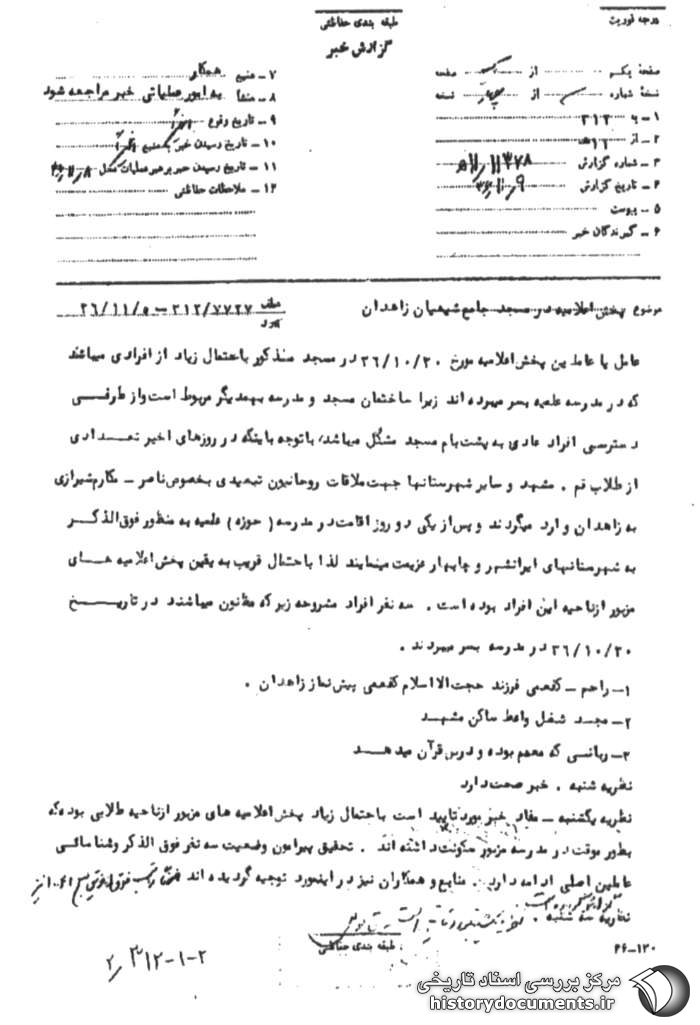 درجه فوریت
طبقه بندی حفاظتی
گزارش خبر
صفحه یکم از یک صفحه
نسخهٔ شماره از چهار نسخه
۱ـ به ۳۱۲
۲ـ از ۱۱ﻫ
۳ـ شماره گزارش
۴ـ تاریخ گزارش ۳۶/۱۱/۹
۵ـ پیوست
۶ـ گیرندگان خبر
۷ـ منبع همکار
۸ـ منشأ به امور عملیاتی خبر مراجعه شود
۹ـ تاریخ وقوع
۱۰ـ تاریخ رسیدن خبر به منبع
۱۱ـ تاریخ رسیدن خبر به رهبر عملیات محل ۳۶/۱۱/۸
۱۲ـ ملاحظات حفاظتی
موضوع پخش اعلامیه در مسجد جامع شیعیان زاهدان
عطف ۳۱۲/۷۷۲۷ – ۳۶/۱۱/۵
عامل یا عاملین پخش اعلامیه مورخ ۳۶/۱۰/۲۰ در مسجد مذکور باحتمال زیاد از افرادی میباشند
که در مدرسه علمیه بسر میبرده اند زیرا ساختمان مسجد و مدرسه بهمدیگر مربوط است و از طرفی
دسترسی افراد عادی به پشت بام مسجد مشکل میباشد، باتوجه باینکه در روزهای اخیر تعدادی
از طلاب قم . مشهد و سایر شهرستانها جهت ملاقات روحانیون تبعیدی بخصوص ناصر – مکارم شیرازی
به زاهدان وارد میگردند و پس از یکی دو روز اقامت در مدرسه (حوزه) علمیه به منظور فوق الذکر
به شهرستانهای ایرانشهر و چابهار عزیمت مینمایند لذا باحتمال قریب به یقین پخش اعلامیه های
مزبور از ناحیه این افراد بوده است . سه نفر افراد مشروحه زیر که مظنون میباشند در تاریخ
۳۶/۱۰/۲۰ در مدرسه بسر میبردند .
۱– راحم – کفعمی فرزند حجت الااسلام کفعمی پیش نماز زاهدان .
۲– مجد شغل واعظ ساکن مشهد
۳– ربانی که معمم بوده و درس قرآن میدهد
نظریه شنبه . خبر صحت دارد
نظریه یکشنبه – مفاد خبر مورد تایید است باحتمال زیاد پخش اعلامیه های مزبور از ناحیه طلابی بوده که
بطور موقت در مدرسه مزبور سکونت داشته اند . تحقیق پیرامون وضعیت سه نفر فوق الذکر و شناسائی
عاملین اصلی ادامه دارد . منابع و همکاران نیز در اینمورد توجیه گردیده اند
نظریه سه شنبه . نظریه یکشنبه مورد تایید است
طبقه بندی حفاظتی
۲۶–۱۲۰
۳۱۲-۱-۲
مرکز بررسی اسناد تاریخی
historydocuments.ir